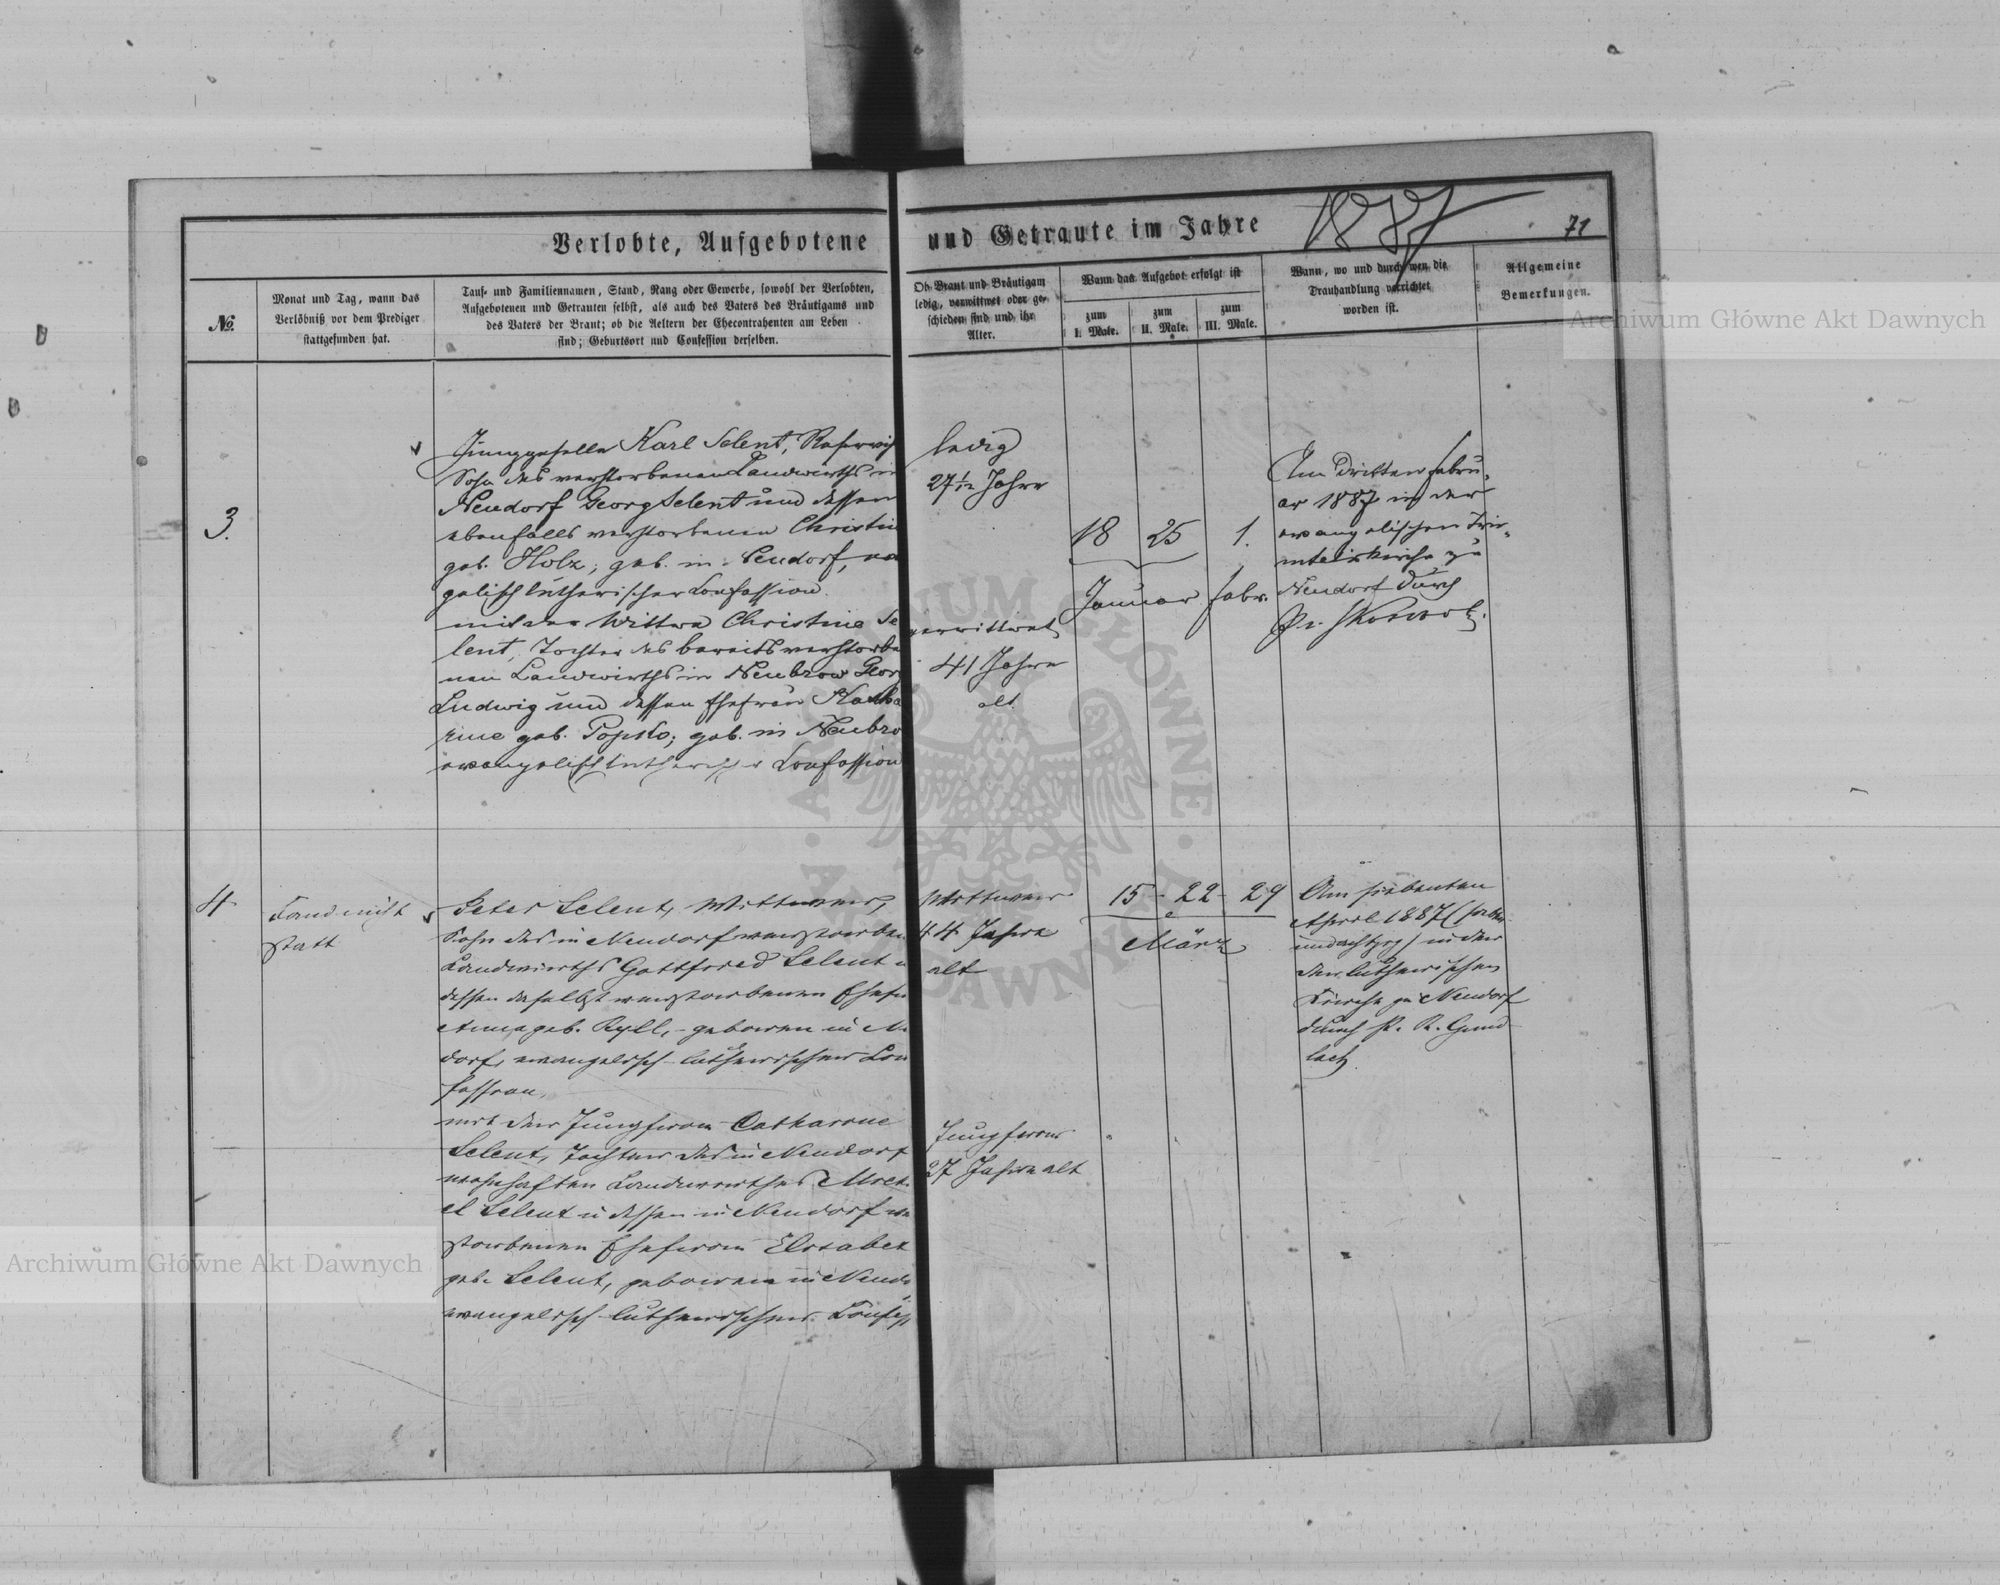 Verlobte, Aufgebotene und Getraute im Jahre 1887
71
№
Monat und Tag, wann das
Verlöbniß vor dem Prediger
stattgefunden hat.
Tauf- und Familiennamen, Stand, Rang oder Gewerbe, sowohl der Verlobten,
Aufgebotenen und Getrauten selbst, als auch des Vaters des Bräutigams und
des Vaters der Braut; ob die Aeltern der Ehecontrahenten am Leben
sind; Geburtsort und Confession derselben.
Ob Braut und Bräutigam
ledig, verwittwet oder ge-
schieden sind und ihr
Alter.
Wann das Aufgebot erfolgt ist
zum
I. Male.
zum
II. Male.
zum
III. Male.
Wann, wo und durch wen die
Trauhandlung verrichtet
worden ist.
Allgemeine
Bemerkungen.
3.
Junggeselle Karl Selent,
Sohn des verstorbenen Landwirths in
Neudorf Georg Selent und dessen
ebenfalls verstorbenen Christin
geb. Holz; geb. in Neudorf, eva
gelisch lutherischer Confession
mit der Wittwe Christine Se
lent, Tochter des bereits verstorbe
nen Landwirths in Neubrow Geor
Ludwig und dessen Ehefrau Katha
rine geb. Popko; geb. in Neubro
evangelisch lutherischer Confession
ledig
27 1/12 Jahre
verwittwet
41 Jahre
alt
18 25 1.
Januar Febr.
Am dritten Febru-
ar 1887 in der
evangelischen Trin-
itatiskirche zu
Neudorf durch
4
Fand nicht
statt
Peter Selent, Wittwer,
Sohn des in Neudorf verstorben
Landwirths Gottfried Selent u
dessen daselbst verstorbenen Ehefr
Anna geb. Ryll, - geboren in N
dorf, evangelisch-lutherischer Con
fession,
mit der Jungfrau Catharine
Selent, Tochter des in Neudorf
wohnhaften Landwirthes Mich
el Selent u dessen in Neudorf ve
storbenen Ehefrau Elisabet
geb. Selent, geboren in Neudo
evangelisch-lutherischer Confess
Wittwer
44 Jahre
alt
Jungfrau
27 Jahre alt
15 - 22 - 29
März
Am siebenten
April 1887 (sieben
undachtzig) in der
ev. lutherischen
Kirche zu Neudorf
durch P. R. Gund
lach
Archiwum Główne Akt Dawnych
Archiwum Główne Akt Dawnych